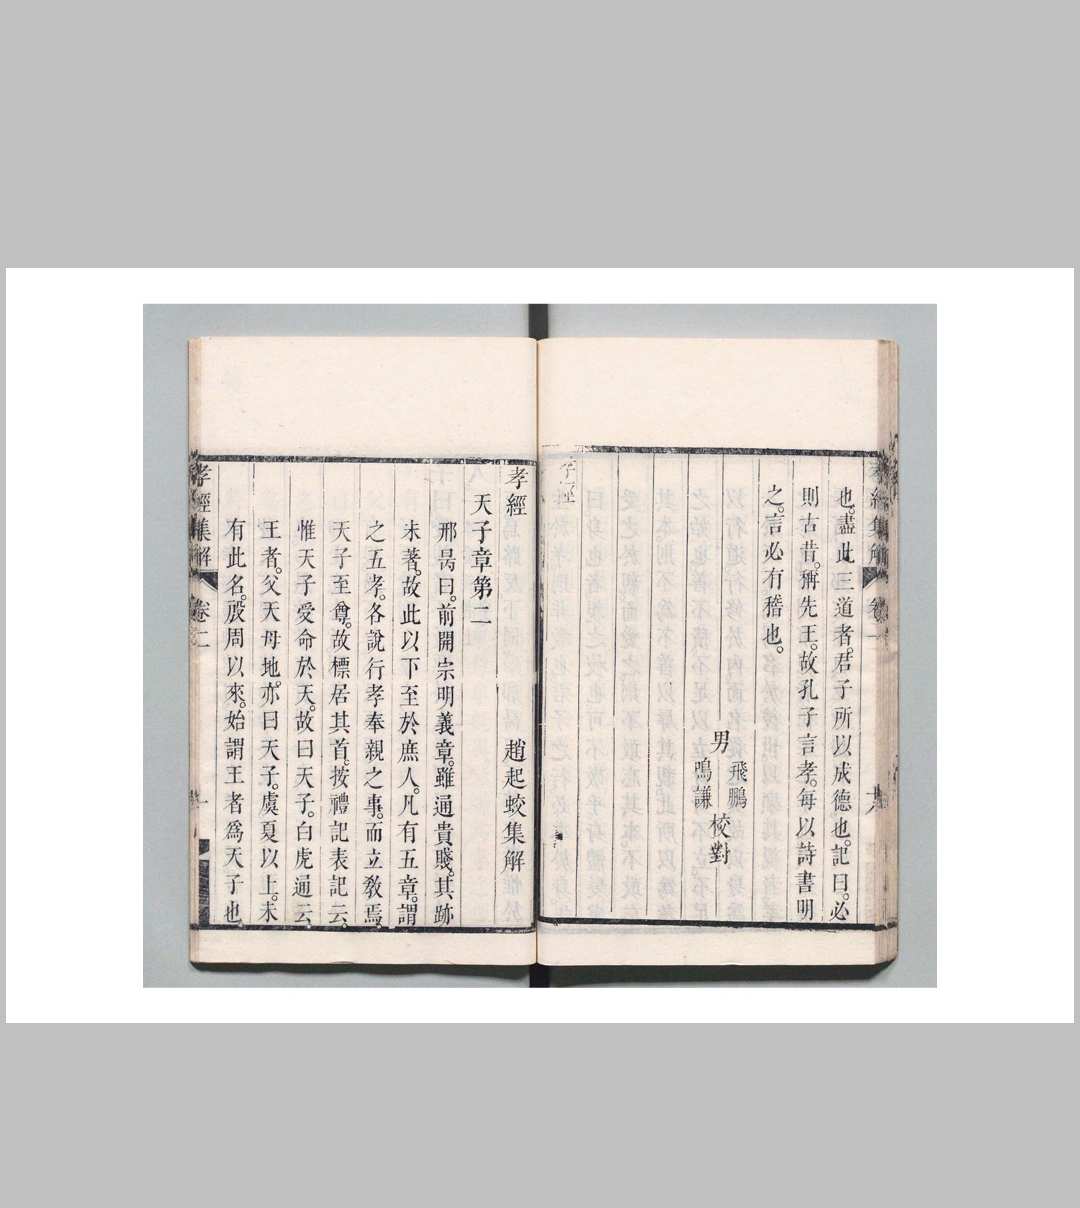 孝經集解
卷一
也。盡此三道者。君子所以成德也。記曰。必
則古昔。稱先王。故孔子言孝。每以詩書明
之。言必有稽也。
男
飛鵬
鳴謙
校對
孝經
趙起蛟集解
天子章第二
邢昺曰。前開宗明義章。雖通貴賤。其跡
未著。故此以下至於庶人。凡有五章。謂
之五孝。各說行孝奉親之事。而立敎焉。
天子至尊。故標居其首。按禮記表記云。
惟天子受命於天。故曰天子。白虎通云。
王者。父天母地。亦曰天子。虞夏以上。未
有此名。殷周以來。始謂王者爲天子也。
孝經集解
卷二
一